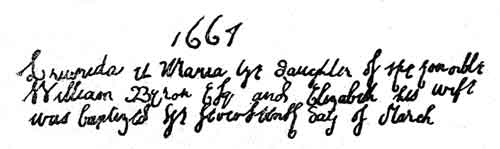 1667
et Maria the daughter of the honorble
William Byron Esq and Elizabeth his wife
was baptized the day of March